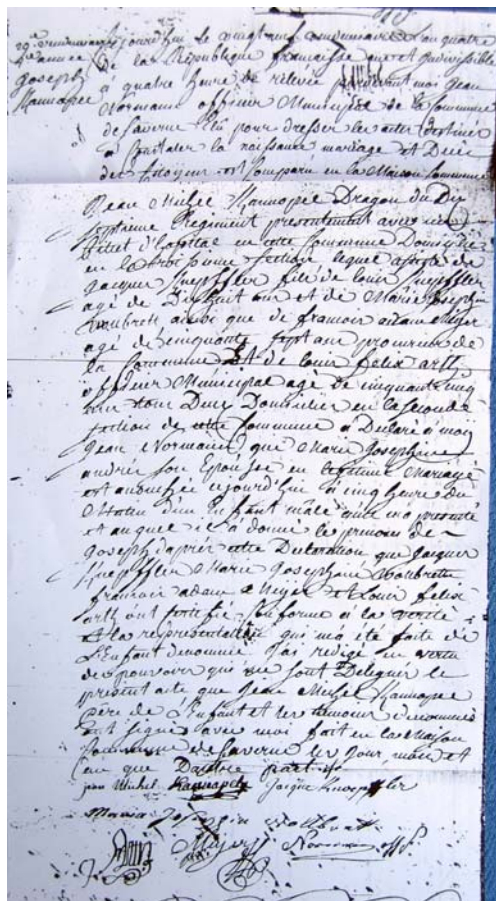 joseph
aujourd'hui le vingt neuf vendemiaire l'an quatre
de la République francaise une et indivisible
à quatre heure de relevée pardevant moi jean
Normand officier Municipal de la Commune
de Saverne Elu pour dresser les actes destinés
à constater la naissance mariage et Décès
des Citoyens est Comparu en la Maison Commune
Jean Michel Kannapee Dragon du Dix
Septieme Regiment presentement avec un
Billet d'hopital en cette Commune Domicilié
en la troisieme Section lequel assisté de
jacques fils de louis
agé de Dix huit ans et de Marie josephine
ainsi que de francois adam Meyer
agé de cinquante sept ans procureur de
la Commune Et de louis felix arth
officier Municipal agé de cinquante cinq
ans tous Deux Domiciliés en la Seconde
Section de cette Commune a Declaré a moy
jean Normand que Marie josephine
andrée son Epouse en legitime Mariage
est accouchée aujourd'hui à cinq heure du
Matin d'un Enfant mâle qu'il m'a presenté
et auquel il à donné le prenom de
joseph d'après cette Declaration que jacques
Marie josephine
francois adam Meyer et louis felix
arth ont Certifié Conforme à la verité
Et la representation qui m'a été faite de
L'Enfant denommé j'ai redigé en vertu
des pouvoirs qui me sont Delegués le
present acte que jean Michel Kannapee
père de L'Enfant et les temoins denommés
ont signés avec moi fait en la Maison
Commune de Saverne les jour mois et
an que Dautre part
jean Michel Kannapee jacque
Meyer Normand off.